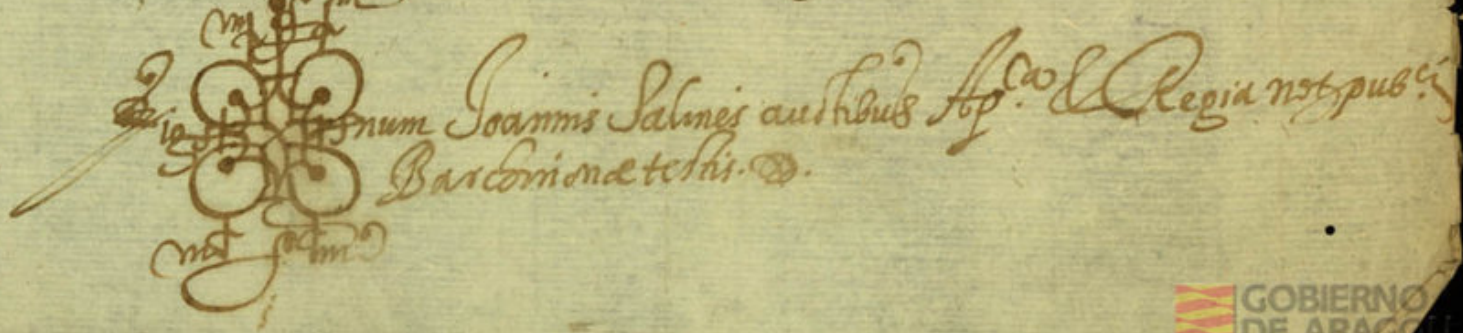 Sig num Joannis Salines auctibus Ap.ca & Regia not. pub.ci
Barchinonæ testis.
GOBIERNO
DE ARAGON